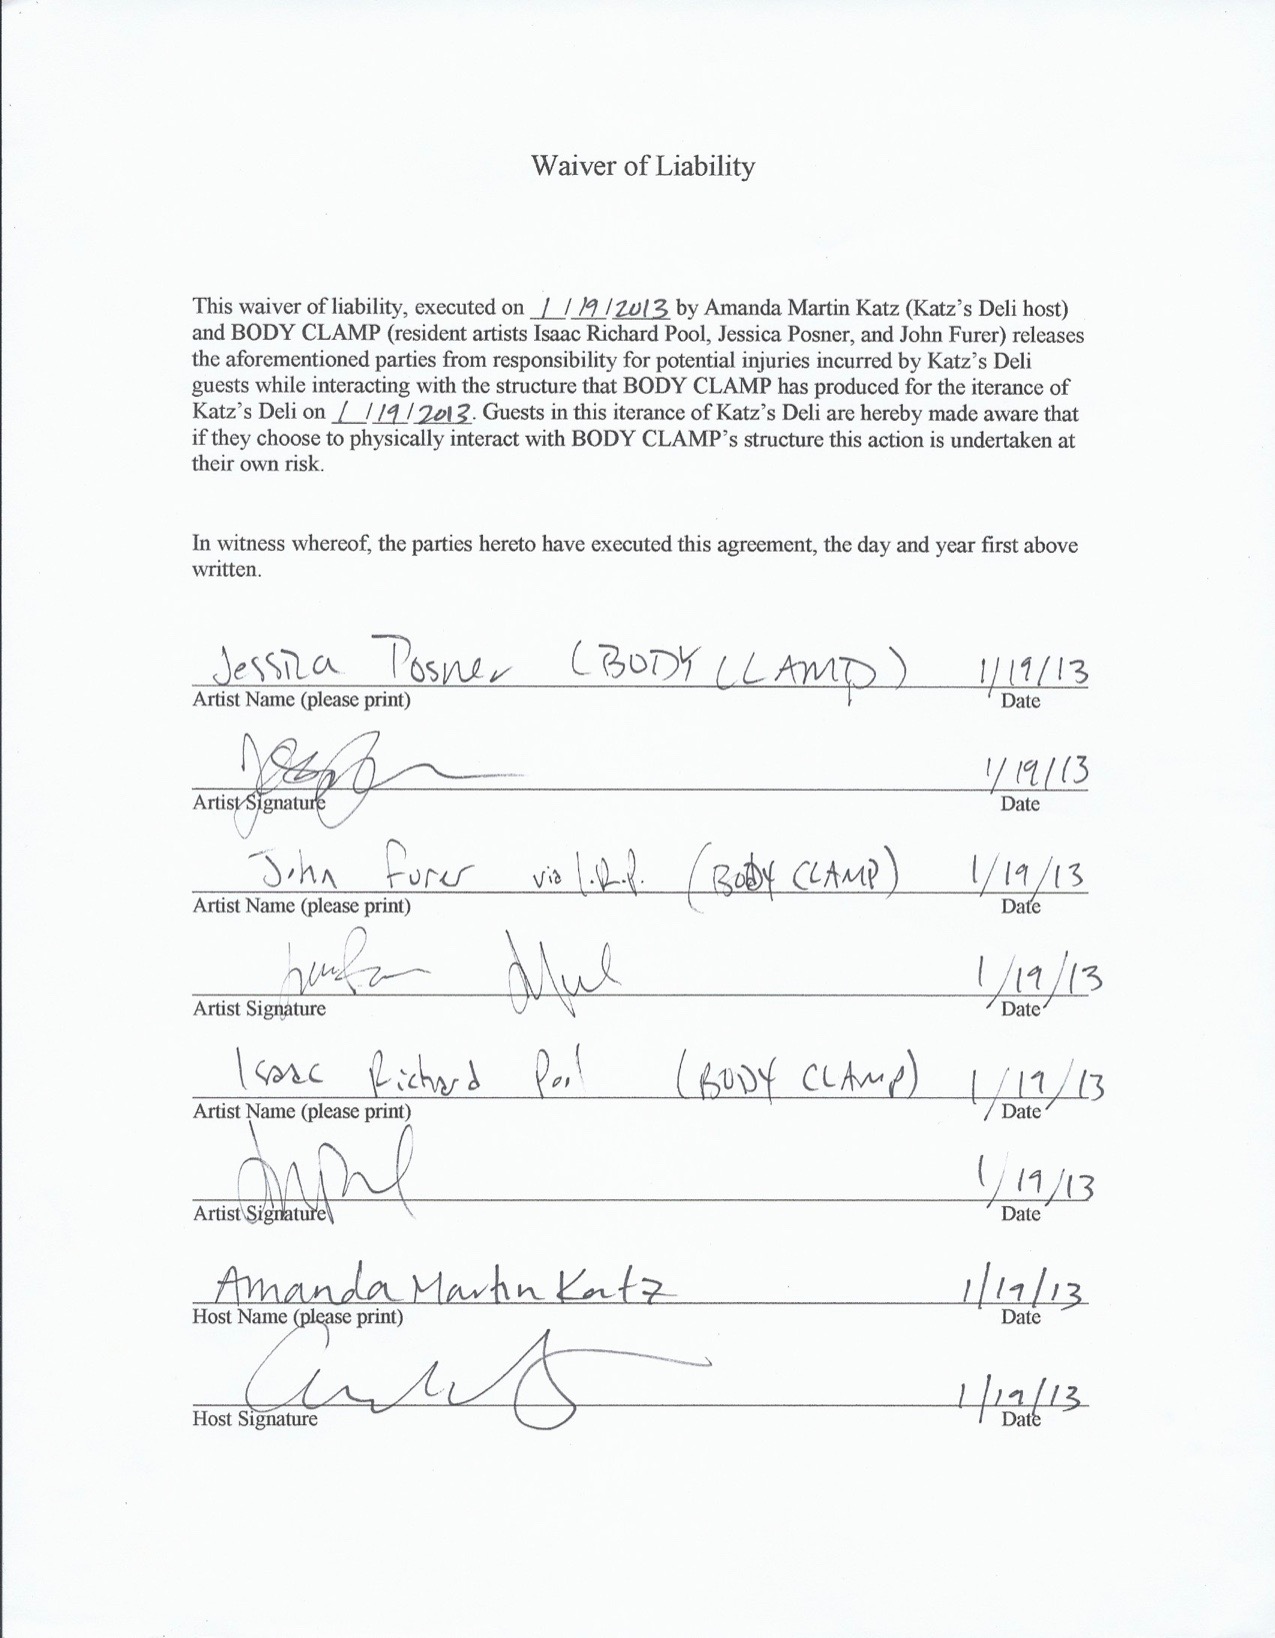 Waiver of Liability
This waiver of liability, executed on 1/19/2013 by Amanda Martin Katz (Katz's Deli host)
and BODY CLAMP (resident artists Isaac Richard Pool, Jessica Posner, and John Furer) releases
the aforementioned parties from responsibility for potential injuries incurred by Katz's Deli
guests while interacting with the structure that BODY CLAMP has produced for the iterance of
Katz's Deli on 1/19/2013. Guests in this iterance of Katz's Deli are hereby made aware that
if they choose to physically interact with BODY CLAMP's structure this action is undertaken at
their own risk.
In witness whereof, the parties hereto have executed this agreement, the day and year first above
written.
Jessica Posner (BODY CLAMP) 1/19/13
Artist Name (please print) Date
1/19/13
Artist Signature Date
John Furer via I.R.P. (BODY CLAMP) 1/19/13
Artist Name (please print) Date
1/19/13
Artist Signature Date
Isaac Richard Pool (BODY CLAMP) 1/19/13
Artist Name (please print) Date
1/19/13
Artist Signature Date
Amanda Martin Katz 1/19/13
Host Name (please print) Date
1/19/13
Host Signature Date